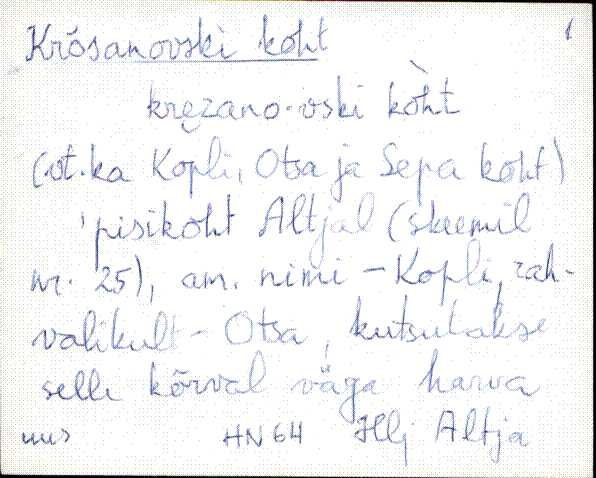 Krõsanovski koht 1
kręzano·vski kòht
(vt. ka Kopli, Otsa ja Sepa koht)
'pisikoht Altjal (skeemil
nr. 25), am. nimi - Kopli, rah-
valikult - Otsa, kutsutakse
selle kõrval väga harva
uus HN 64 Hlj Altja